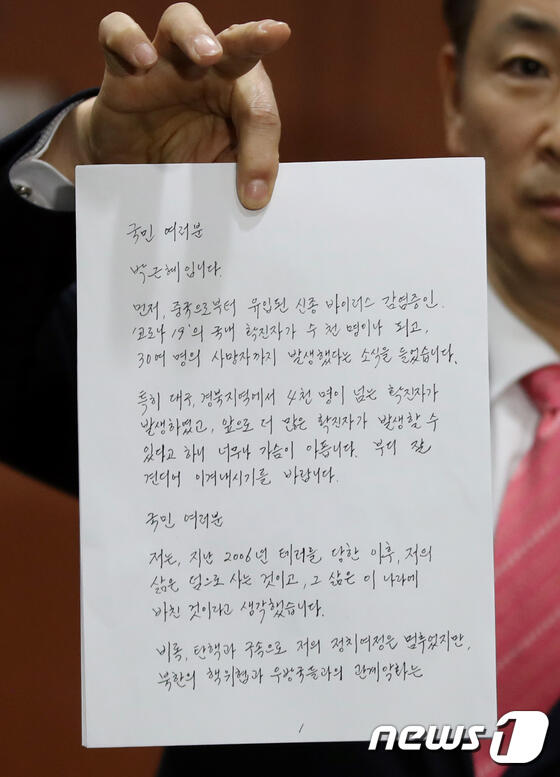 국민 여러분
박근혜입니다.
먼저, 중국으로부터 유입된 신종 바이러스 감염증인.
'코로나 19'의 국내 확진자가 수 천 명이나 되고,
30여 명의 사망자까지 발생했다는 소식을 들었습니다.
특히 대구, 경북지역에서 4천 명이 넘는 확진자가
발생하였고, 앞으로 더 많은 확진자가 발생할 수
있다고 하니 너무나 가슴이 아픕니다. 부디 잘
견디어 이겨내시기를 바랍니다.
국민 여러분
저는, 지난 2006년 테러를 당한 이후, 저의
삶은 덤으로 사는 것이고, 그 삶은 이 나라에
바친 것이라고 생각했습니다.
비록, 탄핵과 구속으로 저의 정치여정은 멈추었지만,
북한의 핵위협과 우방국들과의 관계악화는
1
news1